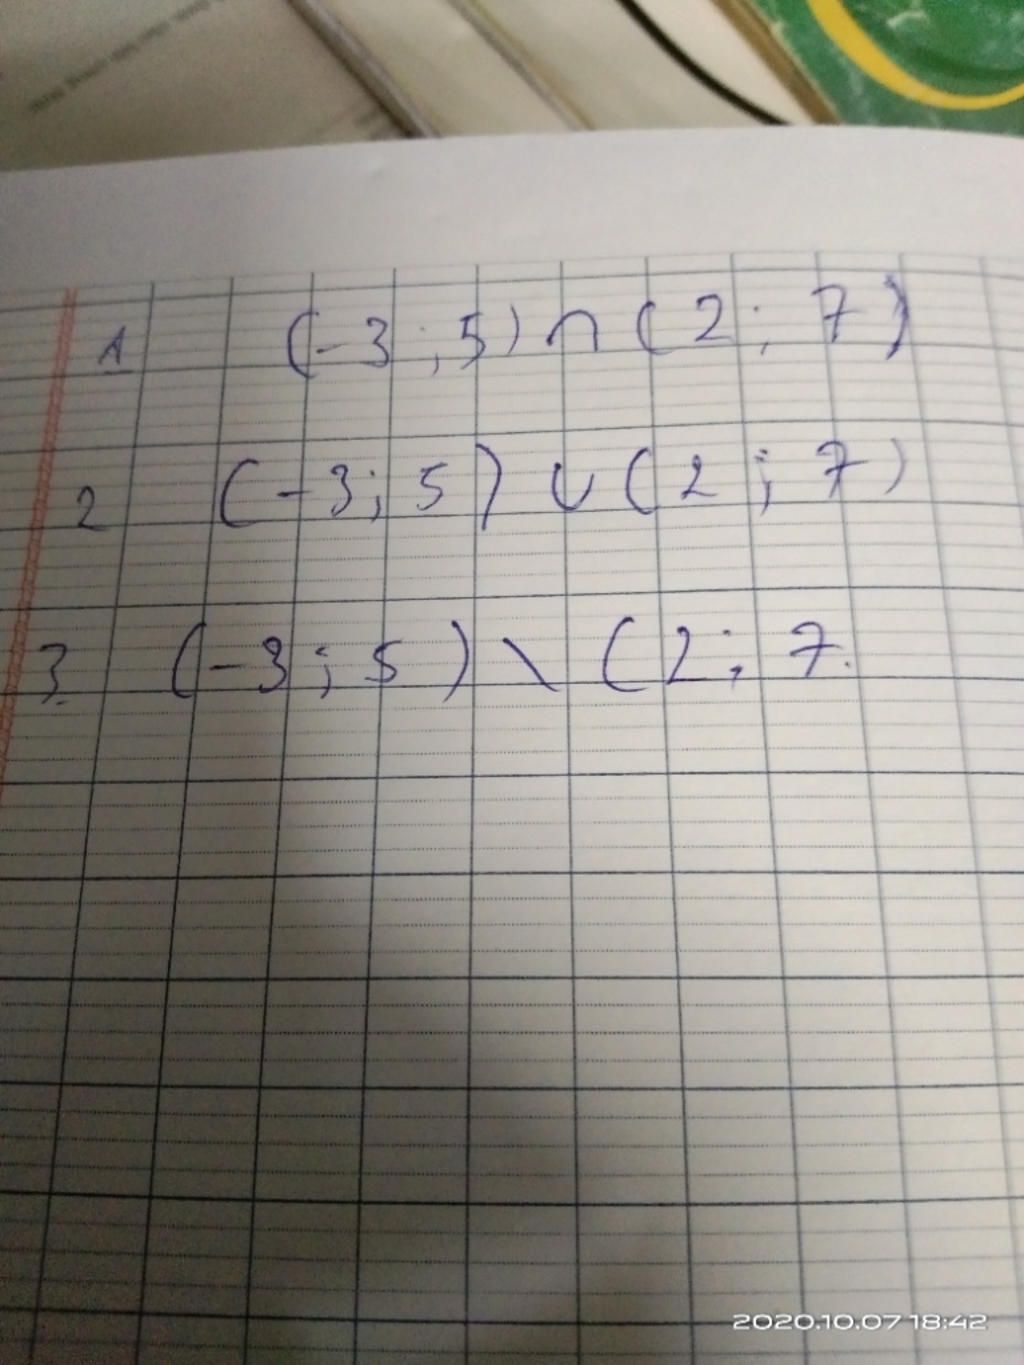 1 (-3 ; 5) ∩ ( 2 ; 7)
2 (-3 ; 5 ) ∪ ( 2 ; 7 )
3. (-3 ; 5 ) \ ( 2 ; 7.
2020.10.07 18:42